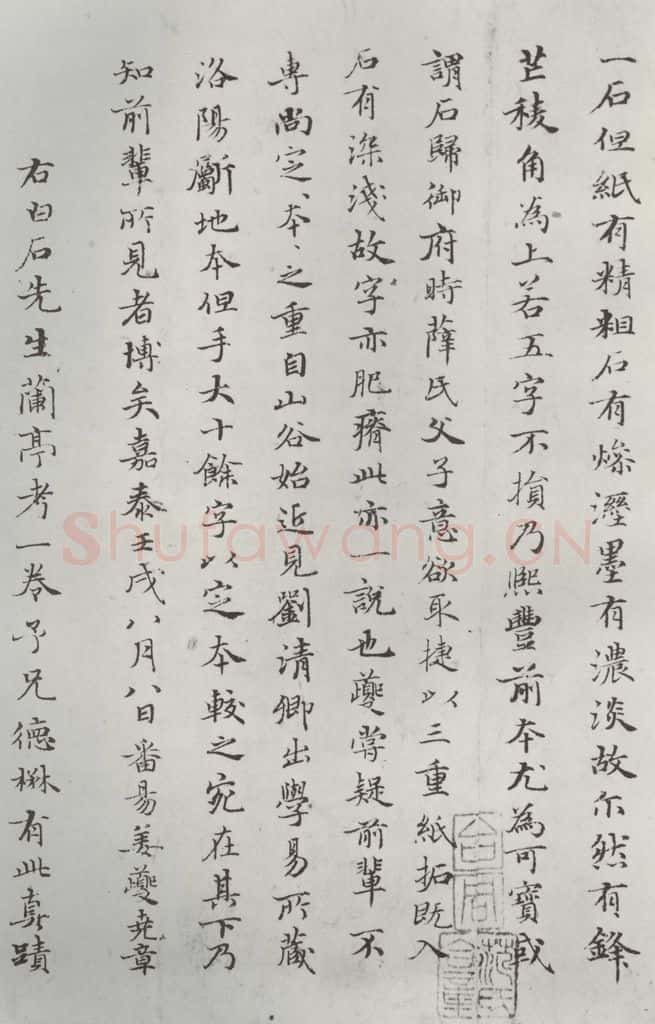 一石但紙有精粗石有燥溼墨有濃淡故尓然有鋒
芒稜角為上若五字不損乃熙豐前本尤為可寶或
謂石歸御府時薛氏父子意欲取捷以三重紙拓既入
石有深淺故字亦肥瘠此亦一說也夔嘗疑前輩不
專尚定本本之重自山谷始近見劉清卿出學易所藏
洛陽斸地本但手大十餘字以定本較之宛在其下乃
知前輩所見者博矣嘉泰壬戌八月八日番昜姜夔堯章
右白石先生蘭亭考一卷予兄德楙有此真蹟
Shufawang.CN